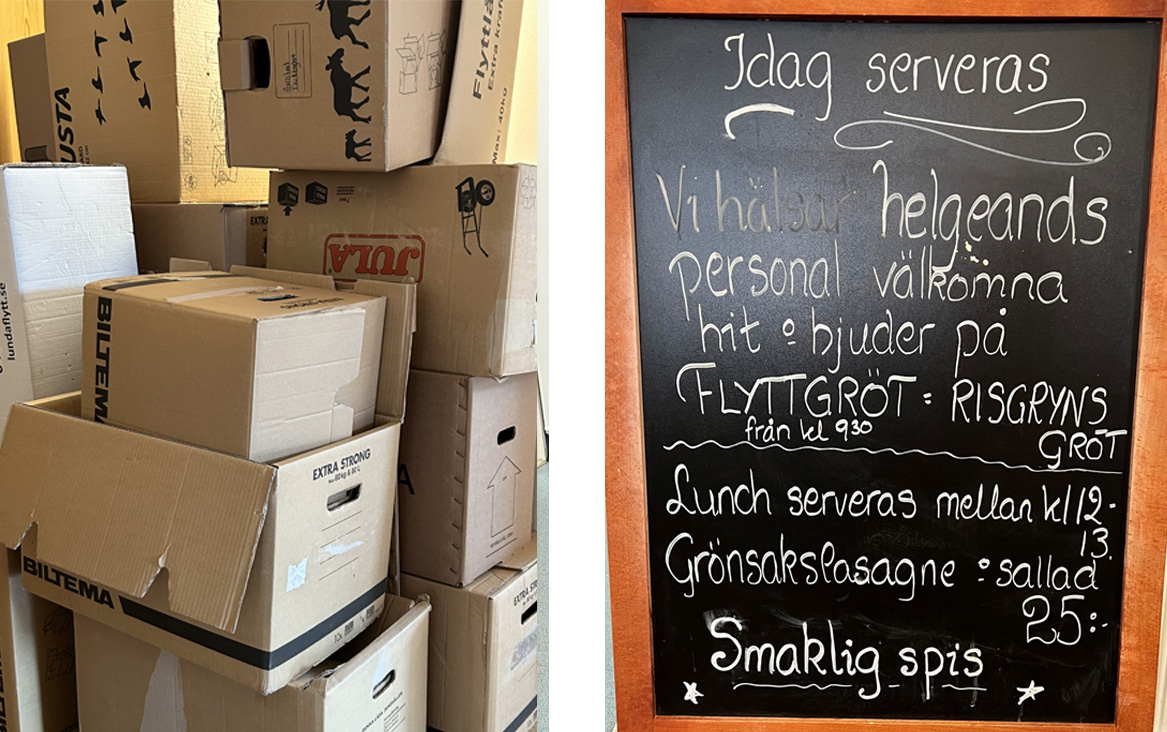 USTA
Flyttlå
Extra kraf
Max: 40kg
EXTRA
JULA
lundaflytt.se
BILTEMA
EXTRA STRONG
BILTEMA
EXTRA STR
Idag serveras
Vi hälsar helgeands
personal välkomna
hit o bjuder på
FLYTTGRÖT = RISGRYNS
från kl 930
GRÖT
Lunch serveras mellan kl 12-
13.
Grönsakslasagne o sallad
25:-
Smaklig spis